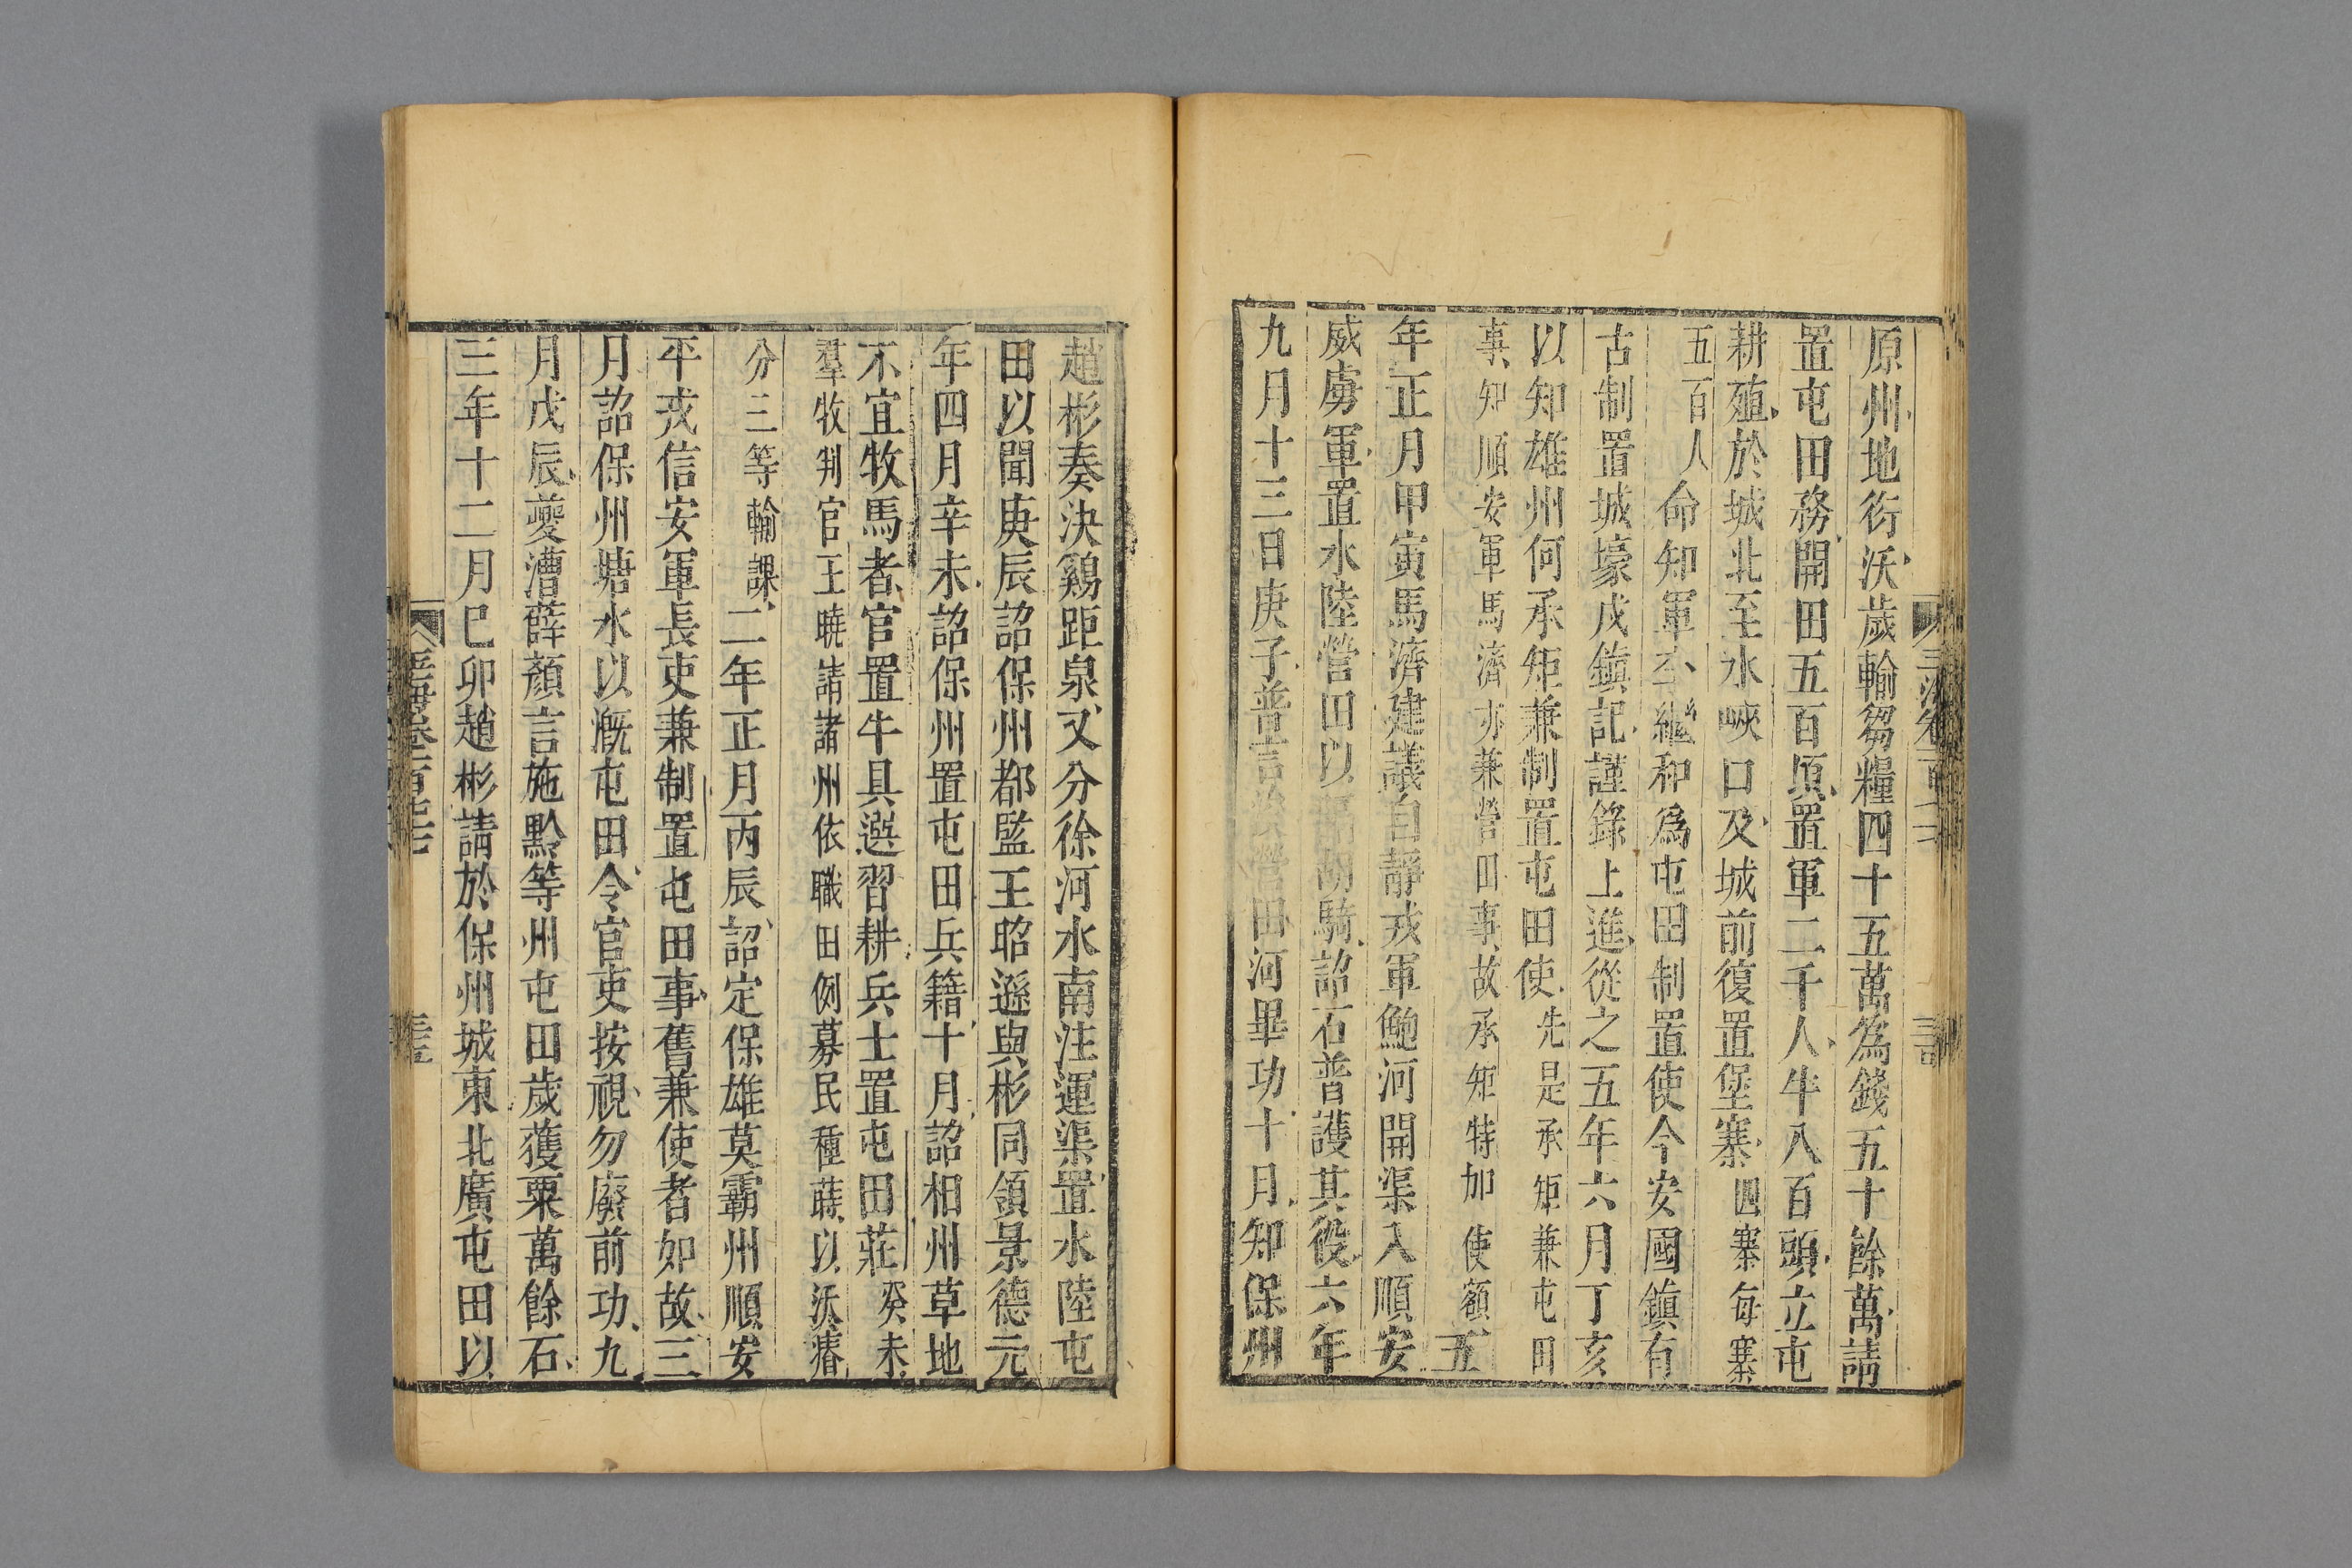 原州地衍沃歲輸芻糧四十五萬爲錢五十餘萬請
置屯田務開田五百頃置軍二千人牛八百頭立屯
耕殖於城北至水峽口及城前復置堡寨四寨每寨
五百人命知軍李繼和爲屯田制置使今安國鎮有
古制置城壕戍鎮記謹錄上進從之五年六月丁亥
以知雄州何承矩兼制置屯田使先是承矩兼屯田
事知順安軍馬濟亦兼營田事故承矩特加使額五
年正月甲寅馬濟建議自靜戎軍鮑河開渠入順安
威虜軍置水陸營田以隔胡騎詔石普護其役六年
九月十三日庚子普言營田河畢功十月知保州
趙彬奏決鷄距泉又分徐河水南注運渠置水陸屯
田以聞庚辰詔保州都監王昭遜與彬同領景德元
年四月辛未詔保州置屯田兵籍十月詔相州草地
不宜牧馬者官置牛具選習耕兵士置屯田莊癸未
羣牧判官王曉請諸州依職田例募民種蒔以沃瘠
分三等輸課二年正月丙辰詔定保雄莫霸州順安
平戎信安軍長吏兼制置屯田事舊兼使者如故三
月詔保州塘水以漑屯田令官吏按視勿廢前功九
月戊辰夔漕薛顏言施黔等州屯田歲獲粟萬餘石
三年十二月巳卯趙彬請於保州城東北廣屯田以